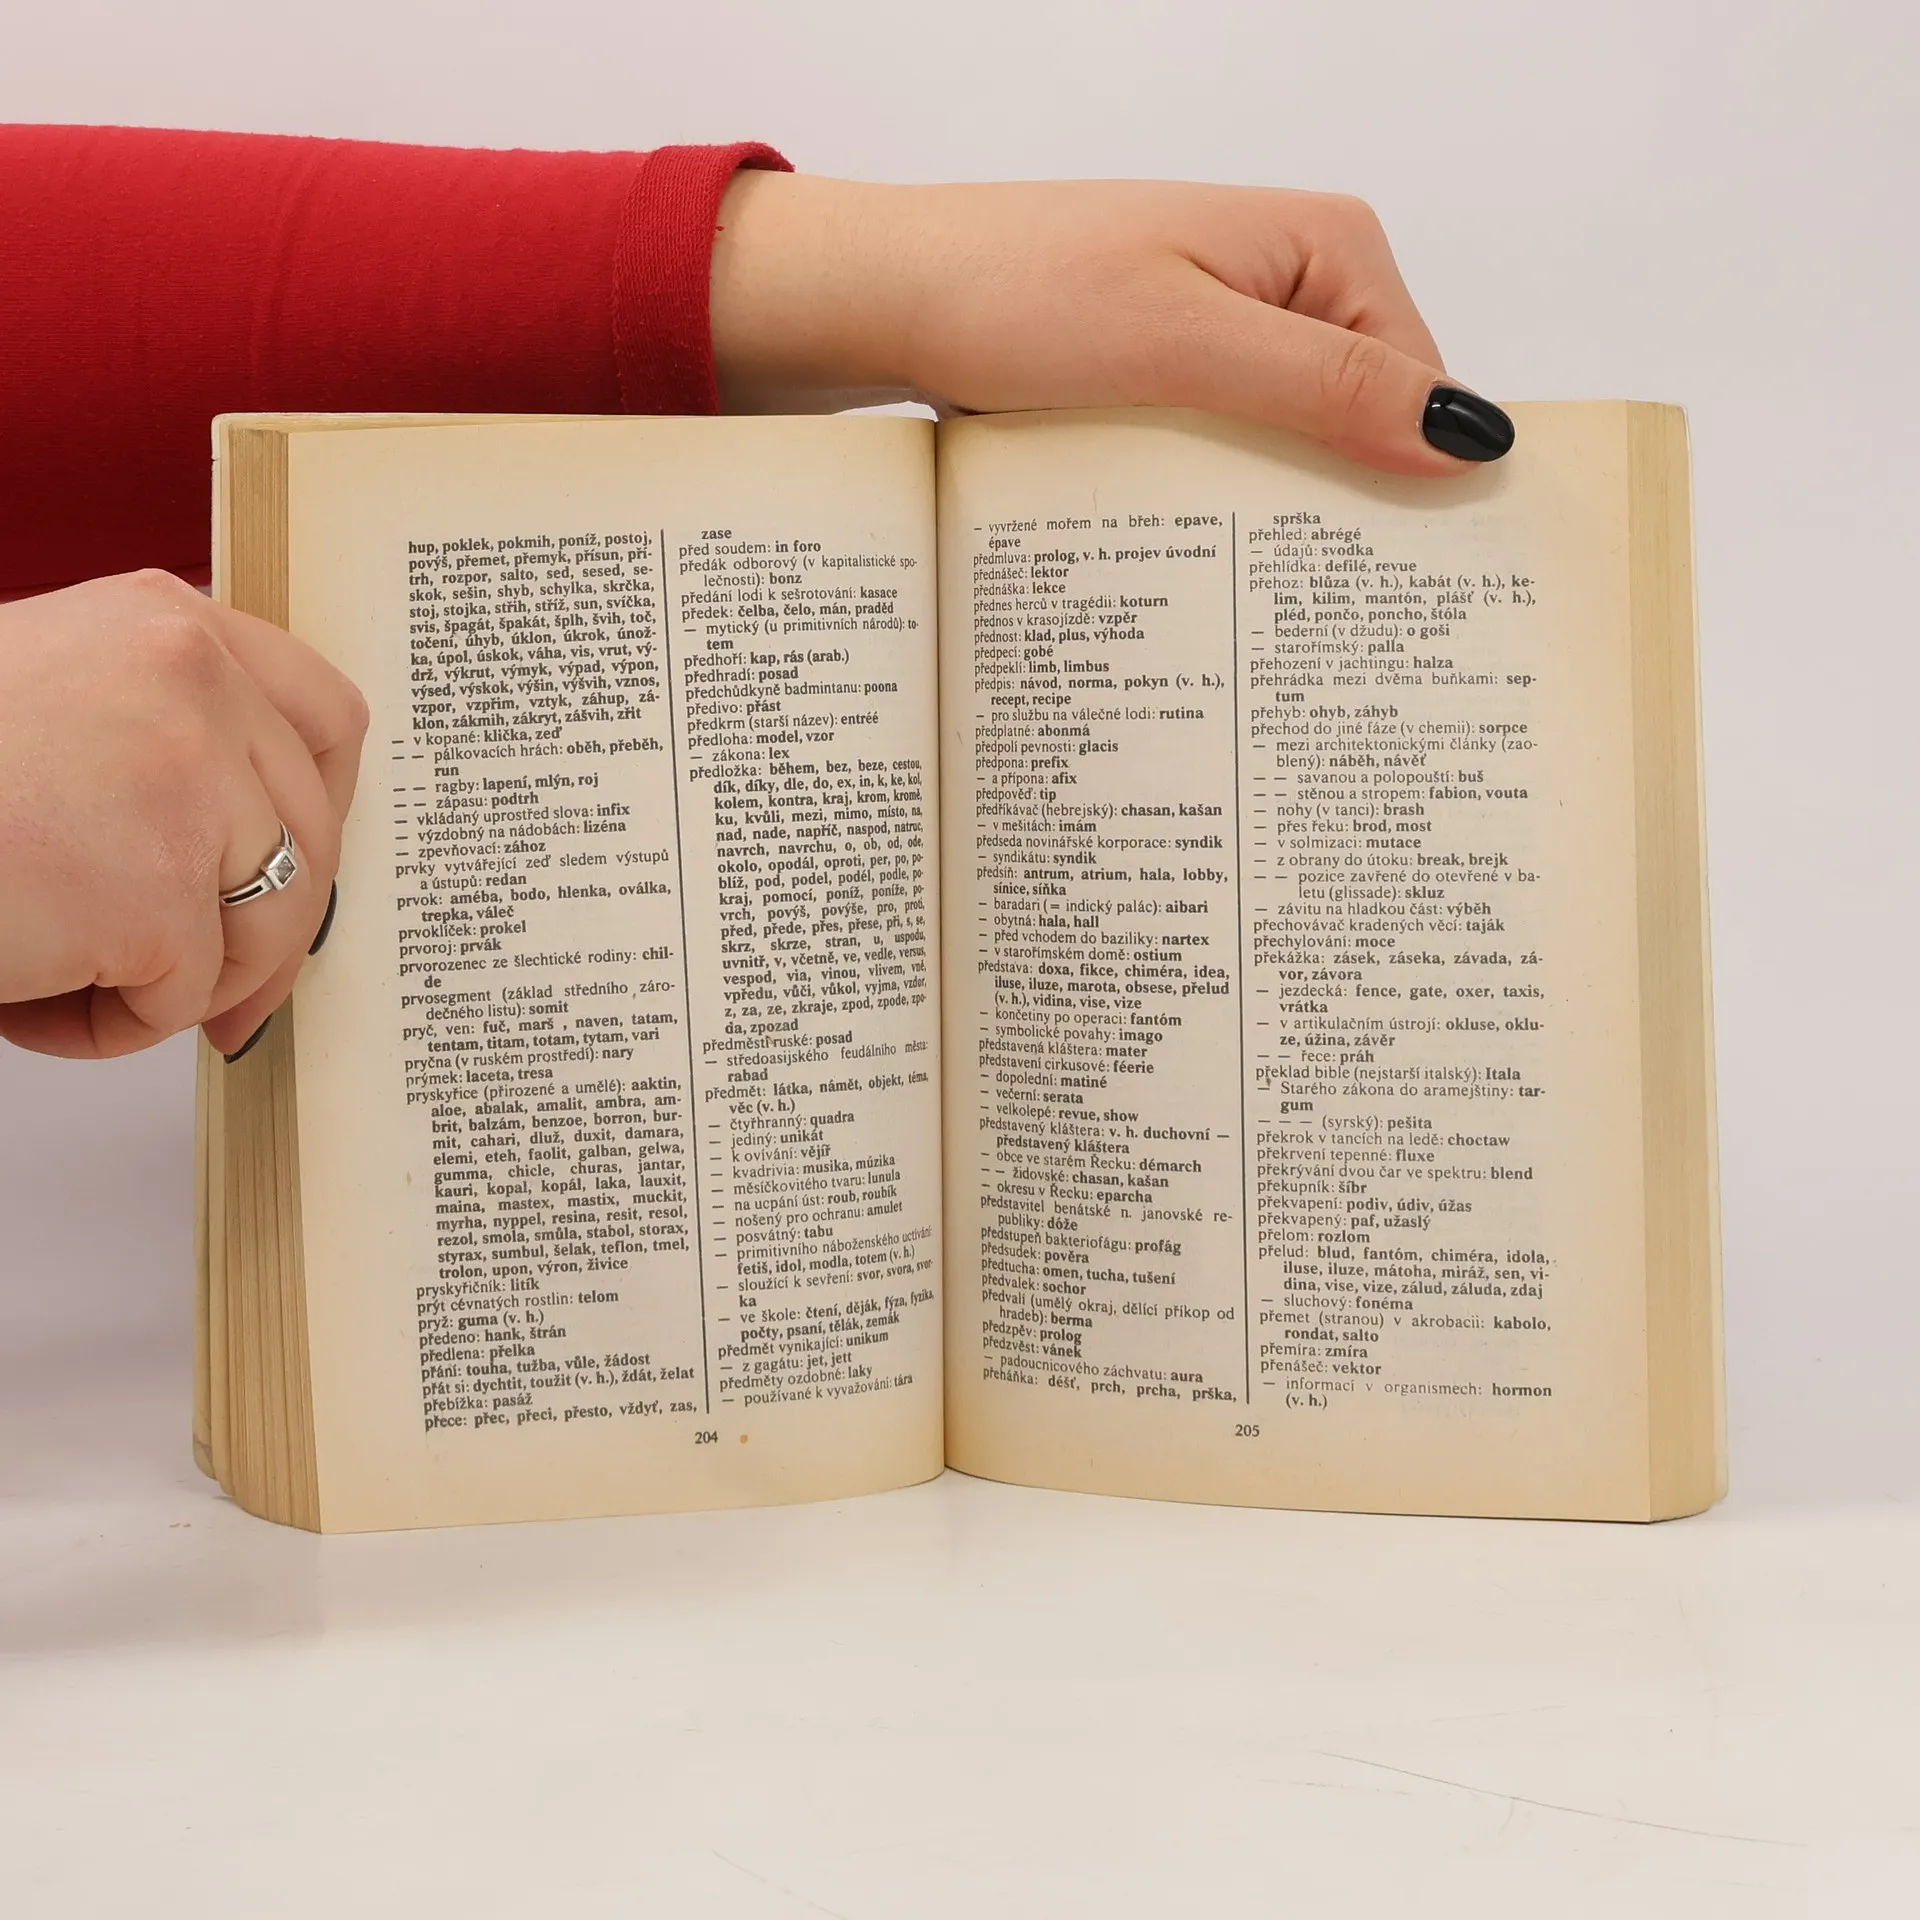 hup, poklek, pokmih, poníž, postoj,
povýš, přemet, přemyk, přísun, pří-
trh, rozpor, salto, sed, sesed, se-
skok, sešin, shyb, schylka, skrčka,
stoj, stojka, střih, stříž, sun, svíčka,
svis, špagát, špakát, šplh, švih, toč,
točení, úhyb, úklon, úkrok, únož-
ka, úpol, úskok, váha, vis, vrut, vý-
drž, výkrut, výmyk, výpad, výpon,
výsed, výskok, výšin, výšvih, vznos,
vzpor, vzpřim, vztyk, záhup, zá-
klon, zákmih, zákryt, zášvih, zřit
— v kopané: klička, zeď
— — pálkovacích hrách: oběh, přeběh,
run
— — ragby: lapení, mlýn, roj
— — zápasu: podtrh
— vkládaný uprostřed slova: infix
— výzdobný na nádobách: lizéna
— zpevňovací: zához
prvky vytvářející zeď sledem výstupů
a ústupů: redan
prvok: améba, bodo, hlenka, oválka,
trepka, váleč
prvoklíček: prokel
prvoroj: prvák
prvorozenec ze šlechtické rodiny: chil-
de
prvosegment (základ středního záro-
dečného listu): somit
pryč, ven: fuč, marš , naven, tatam,
tentam, titam, totam, tytam, vari
pryčna (v ruském prostředí): nary
prýmek: laceta, tresa
pryskyřice (přirozené a umělé): aaktin,
aloe, abalak, amalit, ambra, am-
brit, balzám, benzoe, borron, bur-
mit, cahari, dluž, duxit, damara,
elemi, eteh, faolit, galban, gelwa,
gumma, chicle, churas, jantar,
kauri, kopal, kopál, laka, lauxit,
maina, mastex, mastix, muckit,
myrha, nyppel, resina, resit, resol,
rezol, smola, smůla, stabol, storax,
styrax, sumbul, šelak, teflon, tmel,
trolon, upon, výron, živice
pryskyřičník: litík
prýt cévnatých rostlin: telom
pryž: guma (v. h.)
předeno: hank, štrán
předlena: přelka
přání: touha, tužba, vůle, žádost
přát si: dychtit, toužit (v. h.), ždát, želat
přebížka: pasáž
přece: přec, přeci, přesto, vždyť, zas,
zase
před soudem: in foro
předák odborový (v kapitalistické spo-
lečnosti): bonz
předání lodi k sešrotování: kasace
předek: čelba, čelo, mán, praděd
— mytický (u primitivních národů): to-
tem
předhoří: kap, rás (arab.)
předhradí: posad
předchůdkyně badmintanu: poona
předivo: přást
předkrm (starší název): entréé
předloha: model, vzor
— zákona: lex
předložka: během, bez, beze, cestou,
dík, díky, dle, do, ex, in, k, ke, kol,
kolem, kontra, kraj, krom, kromě,
ku, kvůli, mezi, mimo, místo, na,
nad, nade, napříč, naspod, natruc,
navrch, navrchu, o, ob, od, ode,
okolo, opodál, oproti, per, po, po-
blíž, pod, podel, podél, podle, po-
kraj, pomocí, poníž, poníže, po-
vrch, povýš, povýše, pro, proti,
před, přede, přes, přese, při, s, se,
skrz, skrze, stran, u, uspodu,
uvnitř, v, včetně, ve, vedle, versus,
vespod, via, vinou, vlivem, vně,
vpředu, vůči, vůkol, vyjma, vzdor,
z, za, ze, zkraje, zpod, zpode, zpo-
da, zpozad
předměstí ruské: posad
— středoasijského feudálního města:
rabad
předmět: látka, námět, objekt, téma,
věc (v. h.)
— čtyřhranný: quadra
— jediný: unikát
— k ovívání: vějíř
— kvadrivia: musika, múzika
— měsíčkovitého tvaru: lunula
— na ucpání úst: roub, roubík
— nošený pro ochranu: amulet
— posvátný: tabu
— primitivního náboženského uctívání:
fetiš, idol, modla, totem (v. h.)
— sloužící k sevření: svor, svora, svor-
ka
— ve škole: čtení, děják, fýza, fyzika,
počty, psaní, tělák, zemák
předmět vynikající: unikum
— z gagátu: jet, jett
předměty ozdobné: laky
— používané k vyvažování: tára
204
— vyvržené mořem na břeh: epave,
épave
předmluva: prolog, v. h. projev úvodní
přednášeč: lektor
přednáška: lekce
přednes herců v tragédii: koturn
přednos v krasojízdě: vzpěr
přednost: klad, plus, výhoda
předpecí: gobé
předpeklí: limb, limbus
předpis: návod, norma, pokyn (v. h.),
recept, recipe
— pro službu na válečné lodi: rutina
předplatné: abonmá
předpolí pevnosti: glacis
předpona: prefix
— a přípona: afix
předpověď: tip
předříkávač (hebrejský): chasan, kašan
— v mešitách: imám
předseda novinářské korporace: syndik
— syndikátu: syndik
předsíň: antrum, atrium, hala, lobby,
sínice, síňka
— baradari (= indický palác): aibari
— obytná: hala, hall
— před vchodem do baziliky: nartex
— v starořímském domě: ostium
představa: doxa, fikce, chiméra, idea,
iluse, iluze, marota, obsese, přelud
(v. h.), vidina, vise, vize
— končetiny po operaci: fantóm
— symbolické povahy: imago
představená kláštera: mater
představení cirkusové: féerie
— dopolední: matiné
— večerní: serata
— velkolepé: revue, show
představený kláštera: v. h. duchovní —
představený kláštera
— obce ve starém Řecku: démarch
— — židovské: chasan, kašan
— okresu v Řecku: eparcha
představitel benátské n. janovské re-
publiky: dóže
předstupeň bakteriofágu: profág
předsudek: pověra
předtucha: omen, tucha, tušení
předvalek: sochor
předvalí (umělý okraj, dělící příkop od
hradeb): berma
předzpěv: prolog
předzvěst: vánek
— padoucnicového záchvatu: aura
přeháňka: déšť, prch, prcha, prška,
sprška
přehled: abrégé
— údajů: svodka
přehlídka: defilé, revue
přehoz: blůza (v. h.), kabát (v. h.), ke-
lim, kilim, mantón, plášť (v. h.),
pléd, pončo, poncho, štóla
— bederní (v džudu): o goši
— starořímský: palla
přehození v jachtingu: halza
přehrádka mezi dvěma buňkami: sep-
tum
přehyb: ohyb, záhyb
přechod do jiné fáze (v chemii): sorpce
— mezi architektonickými články (zao-
blený): náběh, návěť
— — savanou a polopouští: buš
— — stěnou a stropem: fabion, vouta
— nohy (v tanci): brash
— přes řeku: brod, most
— v solmizaci: mutace
— z obrany do útoku: break, brejk
— — pozice zavřené do otevřené v ba-
letu (glissade): skluz
— závitu na hladkou část: výběh
přechovávač kradených věcí: taják
přechylování: moce
překážka: zásek, záseka, závada, zá-
vor, závora
— jezdecká: fence, gate, oxer, taxis,
vrátka
— v artikulačním ústrojí: okluse, oklu-
ze, úžina, závěr
— — řece: práh
překlad bible (nejstarší italský): Itala
— Starého zákona do aramejštiny: tar-
gum
— — — (syrský): pešita
překrok v tancích na ledě: choctaw
překrvení tepenné: fluxe
překrývání dvou čar ve spektru: blend
překupník: šíbr
překvapení: podiv, údiv, úžas
překvapený: paf, užaslý
přelom: rozlom
přelud: blud, fantóm, chiméra, idola,
iluse, iluze, mátoha, miráž, sen, vi-
dina, vise, vize, zálud, záluda, zdaj
— sluchový: fonéma
přemet (stranou) v akrobacii: kabolo,
rondat, salto
přemíra: zmíra
přenášeč: vektor
— informací v organismech: hormon
(v. h.)
205